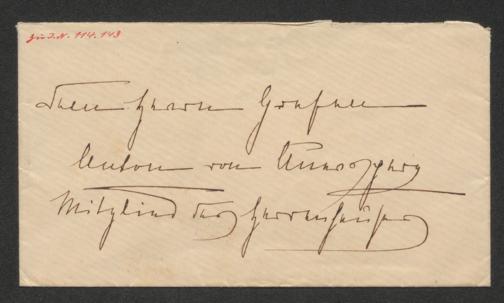 zu J.N. 114.143
Dem Herrn Grafen
Anton von Auersperg
Mitglied des Herrenhauses